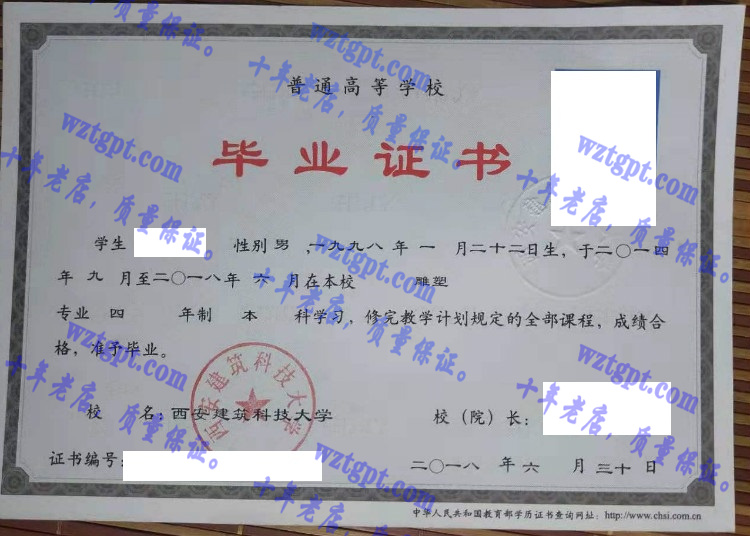 普通高等学校
毕业证书
学生 性别 男 ,一九九八 年 一 月二十二日生，于二〇一四
年 九 月至二〇一八年 六 月在本校 雕塑
专业 四 年制 本 科学习，修完教学计划规定的全部课程，成绩合
格，准予毕业。
校 名：西安建筑科技大学
校（院）长：
证书编号：
二〇一八 年 六 月 三十 日
中华人民共和国教育部学历证书查询网址：http://www.chsi.com.cn
西安建筑科技大学
wztgpt.com
十年老店，质量保证。
wztgpt.com
十年老店，质量保证。
wztgpt.com
十年老店，质量保证。
wztgpt.com
十年老店，质量保证。
wztgpt.com
十年老店，质量保证。
wztgpt.com
十年老店，质量保证。
wztgpt.com
十年老店，质量保证。
wztgpt.com
十年老店，质量保证。